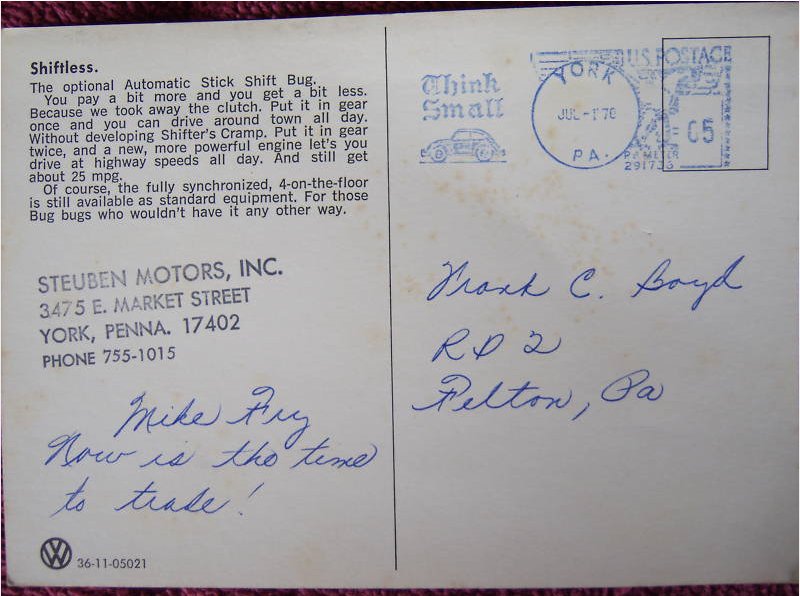 Shiftless.
The optional Automatic Stick Shift Bug.
You pay a bit more and you get a bit less.
Because we took away the clutch. Put it in gear
once and you can drive around town all day.
Without developing Shifter's Cramp. Put it in gear
twice, and a new, more powerful engine let's you
drive at highway speeds all day. And still get
about 25 mpg.
Of course, the fully synchronized, 4-on-the-floor
is still available as standard equipment. For those
Bug bugs who wouldn't have it any other way.
STEUBEN MOTORS, INC.
3475 E. MARKET STREET
YORK, PENNA. 17402
PHONE 755-1015
Mike Fry
Now is the time
to trade!
VW 36-11-05021
Think
Small
YORK
JUL-1'70
PA.
U.S. POSTAGE
05
PB METER
291733
Frank C. Boyd
RD 2
Felton, Pa